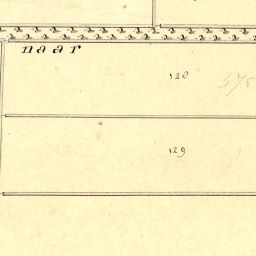 naar
128
375
129